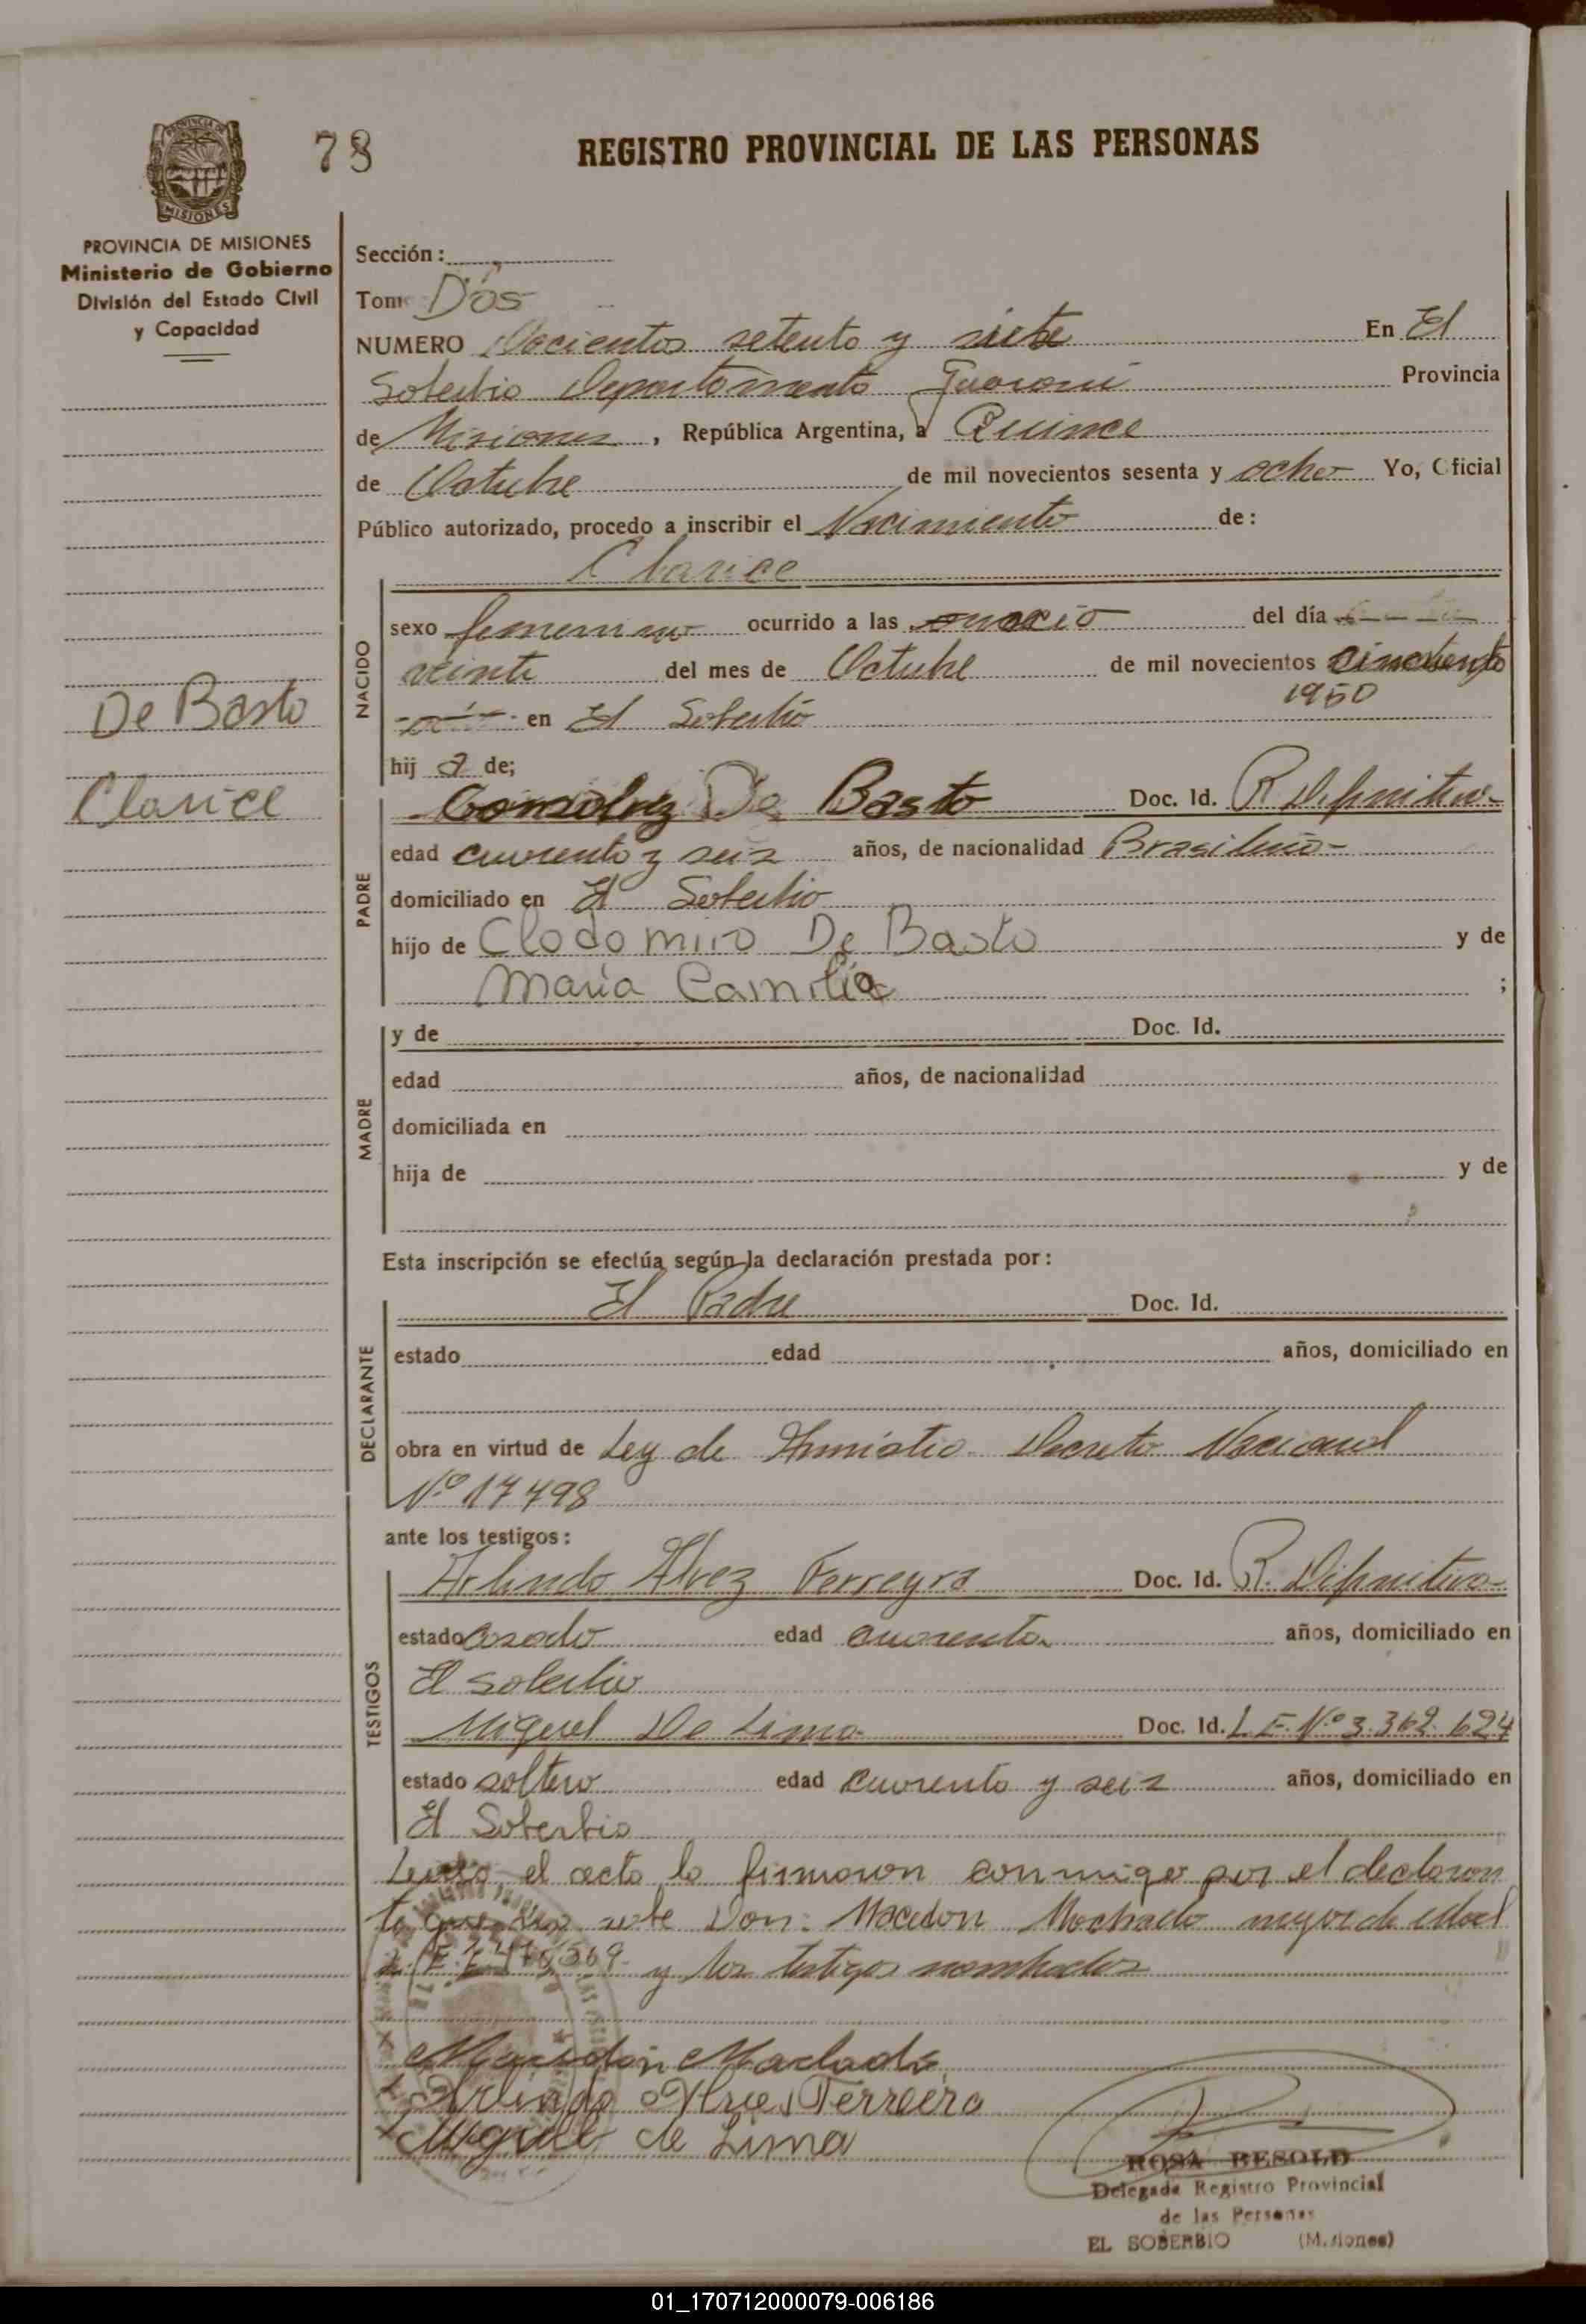 78
REGISTRO PROVINCIAL DE LAS PERSONAS
PROVINCIA DE
MISIONES
PROVINCIA DE MISIONES
Ministerio de Gobierno
División del Estado Civil
y Capacidad
De Basto
Clarice
Sección:
Tomo Dos
NUMERO Docientos setenta y siete En El
Soberbio Departamento Guarani Provincia
de Misiones, República Argentina, a Quince
de Octubre de mil novecientos sesenta y ocho Yo, Oficial
Público autorizado, procedo a inscribir el Nacimiento de:
Clarice
NACIDO
sexo femenino ocurrido a las del día
veinte del mes de Octubre de mil novecientos cincuenta
1950
en El Soberbio
hij a de;
PADRE
De Basto Doc. Id. R Difinitiva
edad cuarenta y seis años, de nacionalidad Brasileño
domiciliado en El Soberbio
hijo de Clodomiro De Basto y de
Maria Camilia ;
MADRE
y de Doc. Id.
edad años, de nacionalidad
domiciliada en
hija de y de
Esta inscripción se efectúa según la declaración prestada por:
DECLARANTE
El Padre Doc. Id.
estado edad años, domiciliado en
obra en virtud de Ley de Amnistia Decreto Nacional
Nº 17498
ante los testigos:
TESTIGOS
Arlindo Alvez Ferreyra Doc. Id. R. Difinitiva
estado Casado edad cuarenta años, domiciliado en
El Soberbio
Miguel De Lima Doc. Id. L E. Nº 3.362.624
estado soltero edad cuarenta y seis años, domiciliado en
El Soberbio
el acta la firmaron conmigo por el declaran
te que no sabe Don: Macedon Machado mayor de edad
y los testigos nombrados
Macedon Machado
Arlindo Alves Ferreira
Miguel de Lima
ROSA BESOLD
Delegada Registro Provincial
de las Personas
EL SOBERBIO (Misiones)
01_170712000079-006186